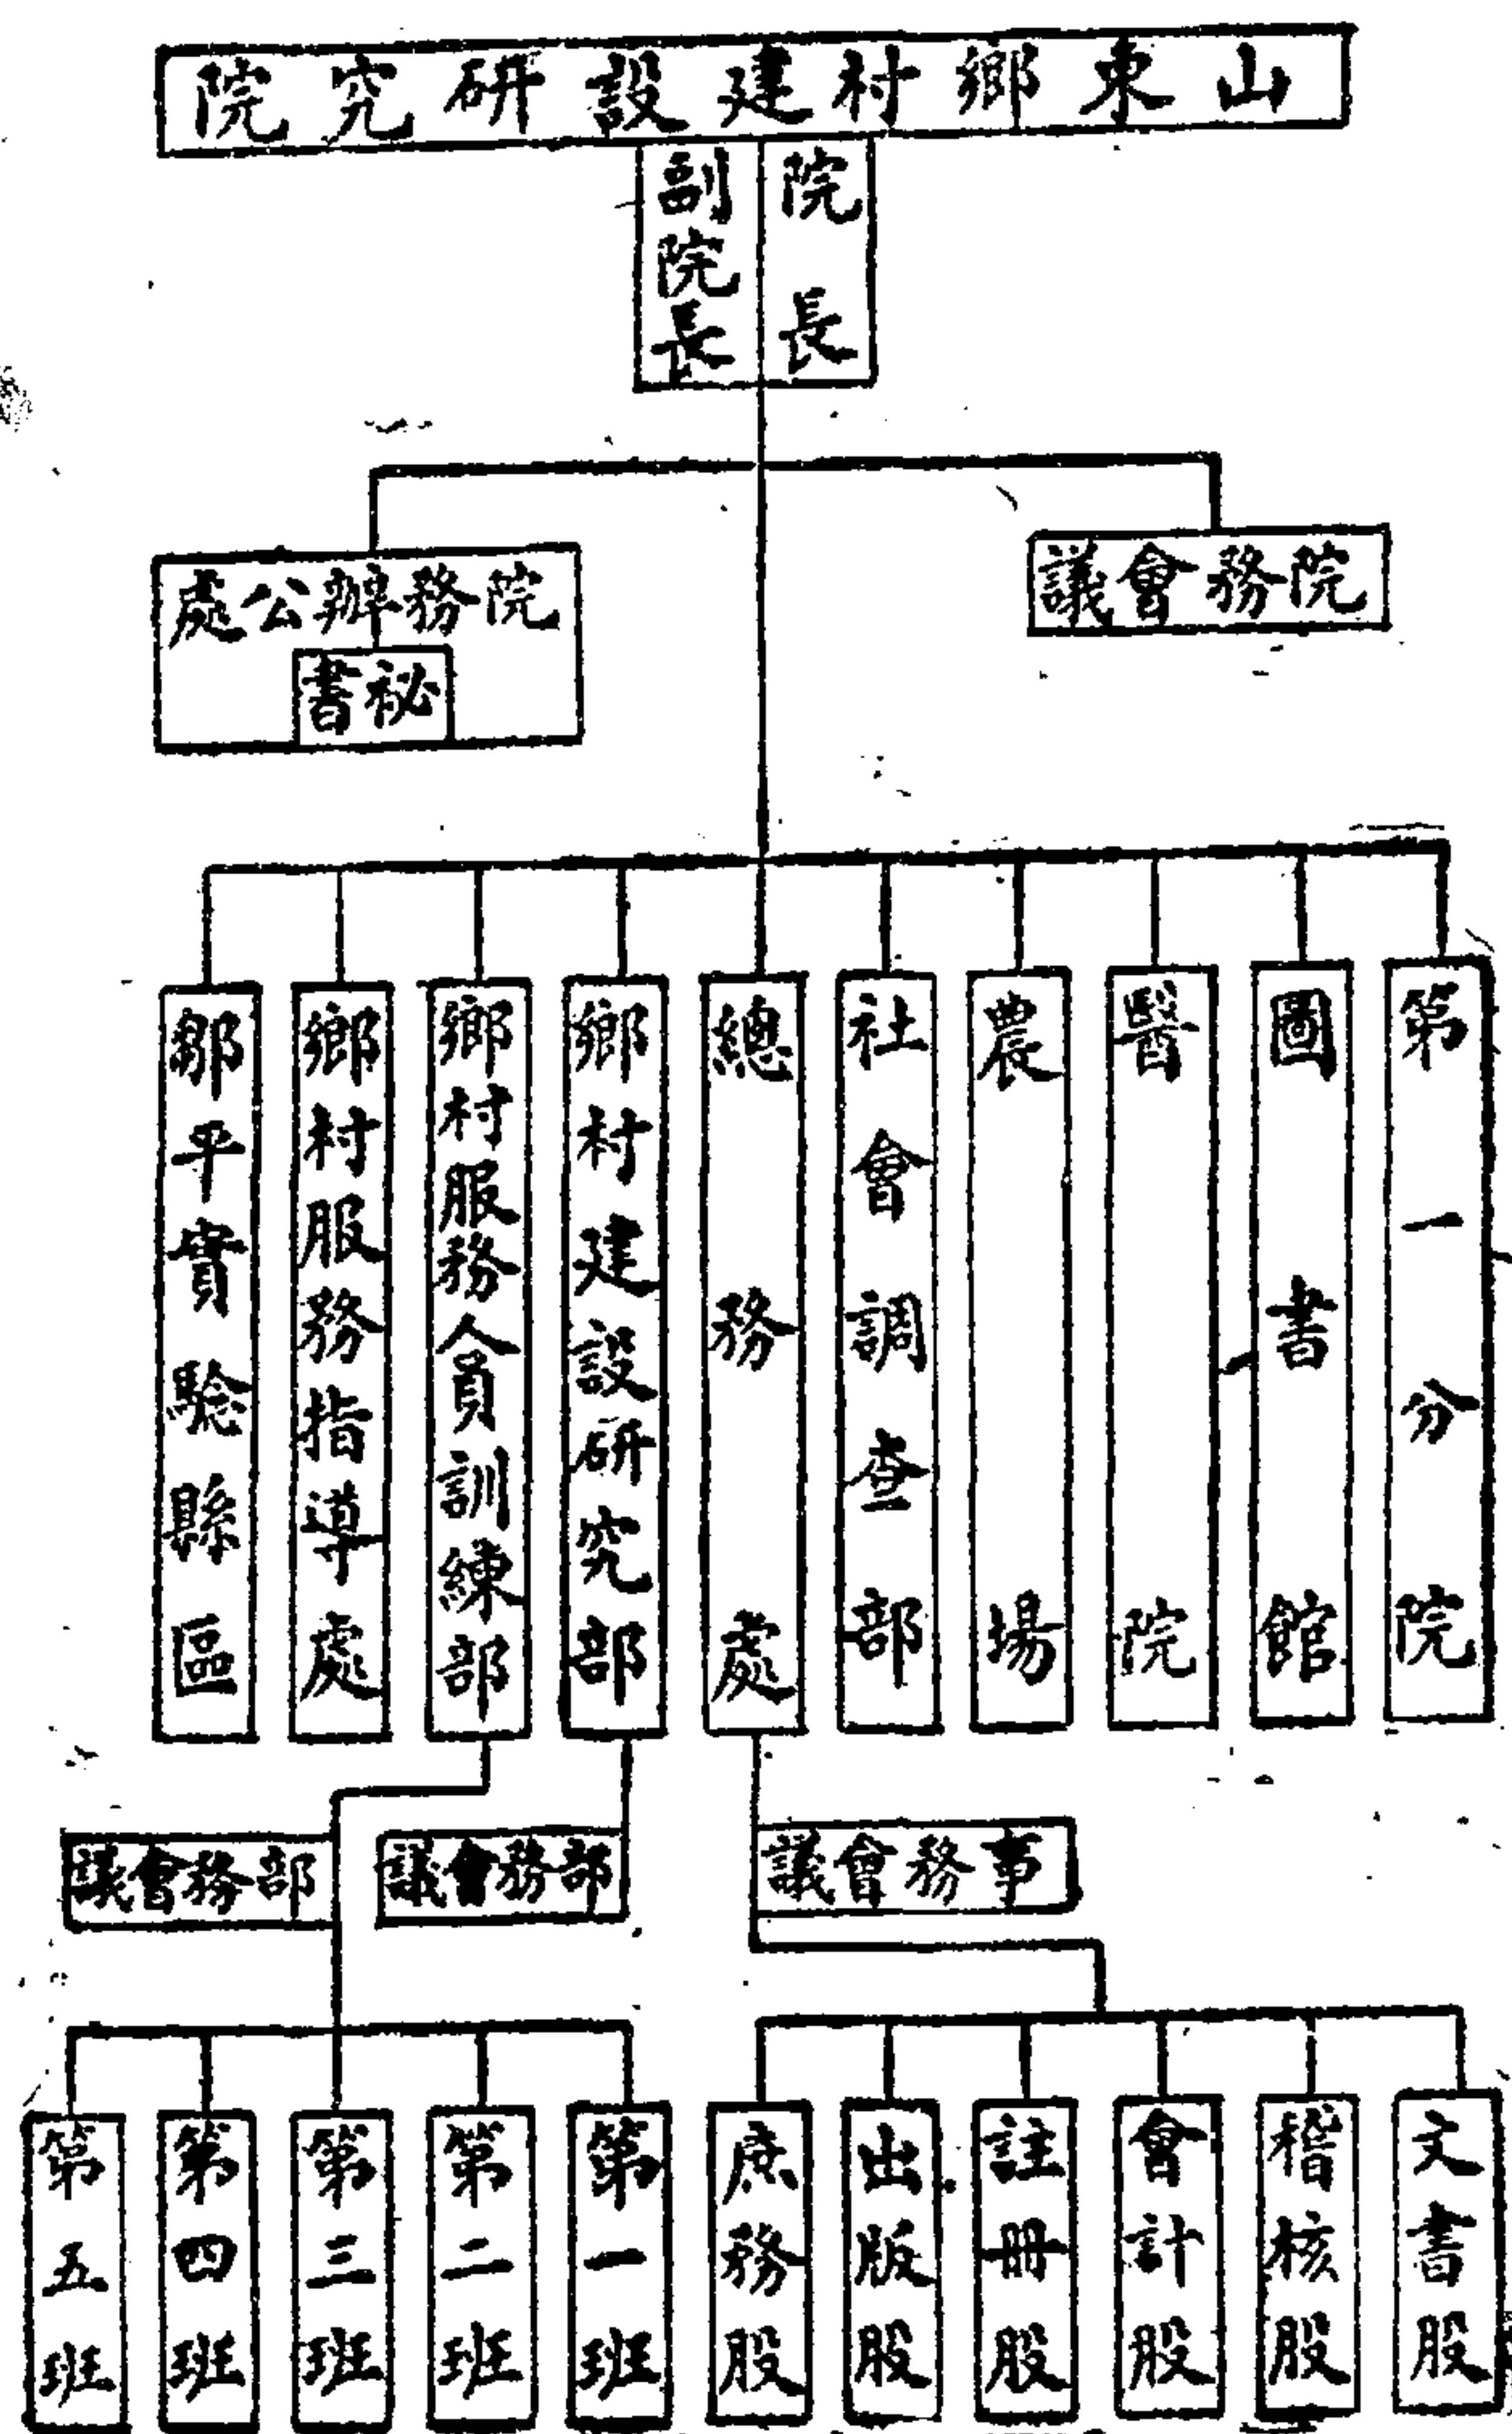 山東鄉村建設研究院
院長
副院長
院務會議
院務辦公處
秘書
第一分院
圖書館
醫院
農場
社會調查部
總務處
鄉村建設研究部
鄉村服務人員訓練部
鄉村服務指導處
鄒平實驗縣區
事務會議
部務會議
部務會議
文書股
稽核股
會計股
註冊股
出版股
庶務股
第一班
第二班
第三班
第四班
第五班